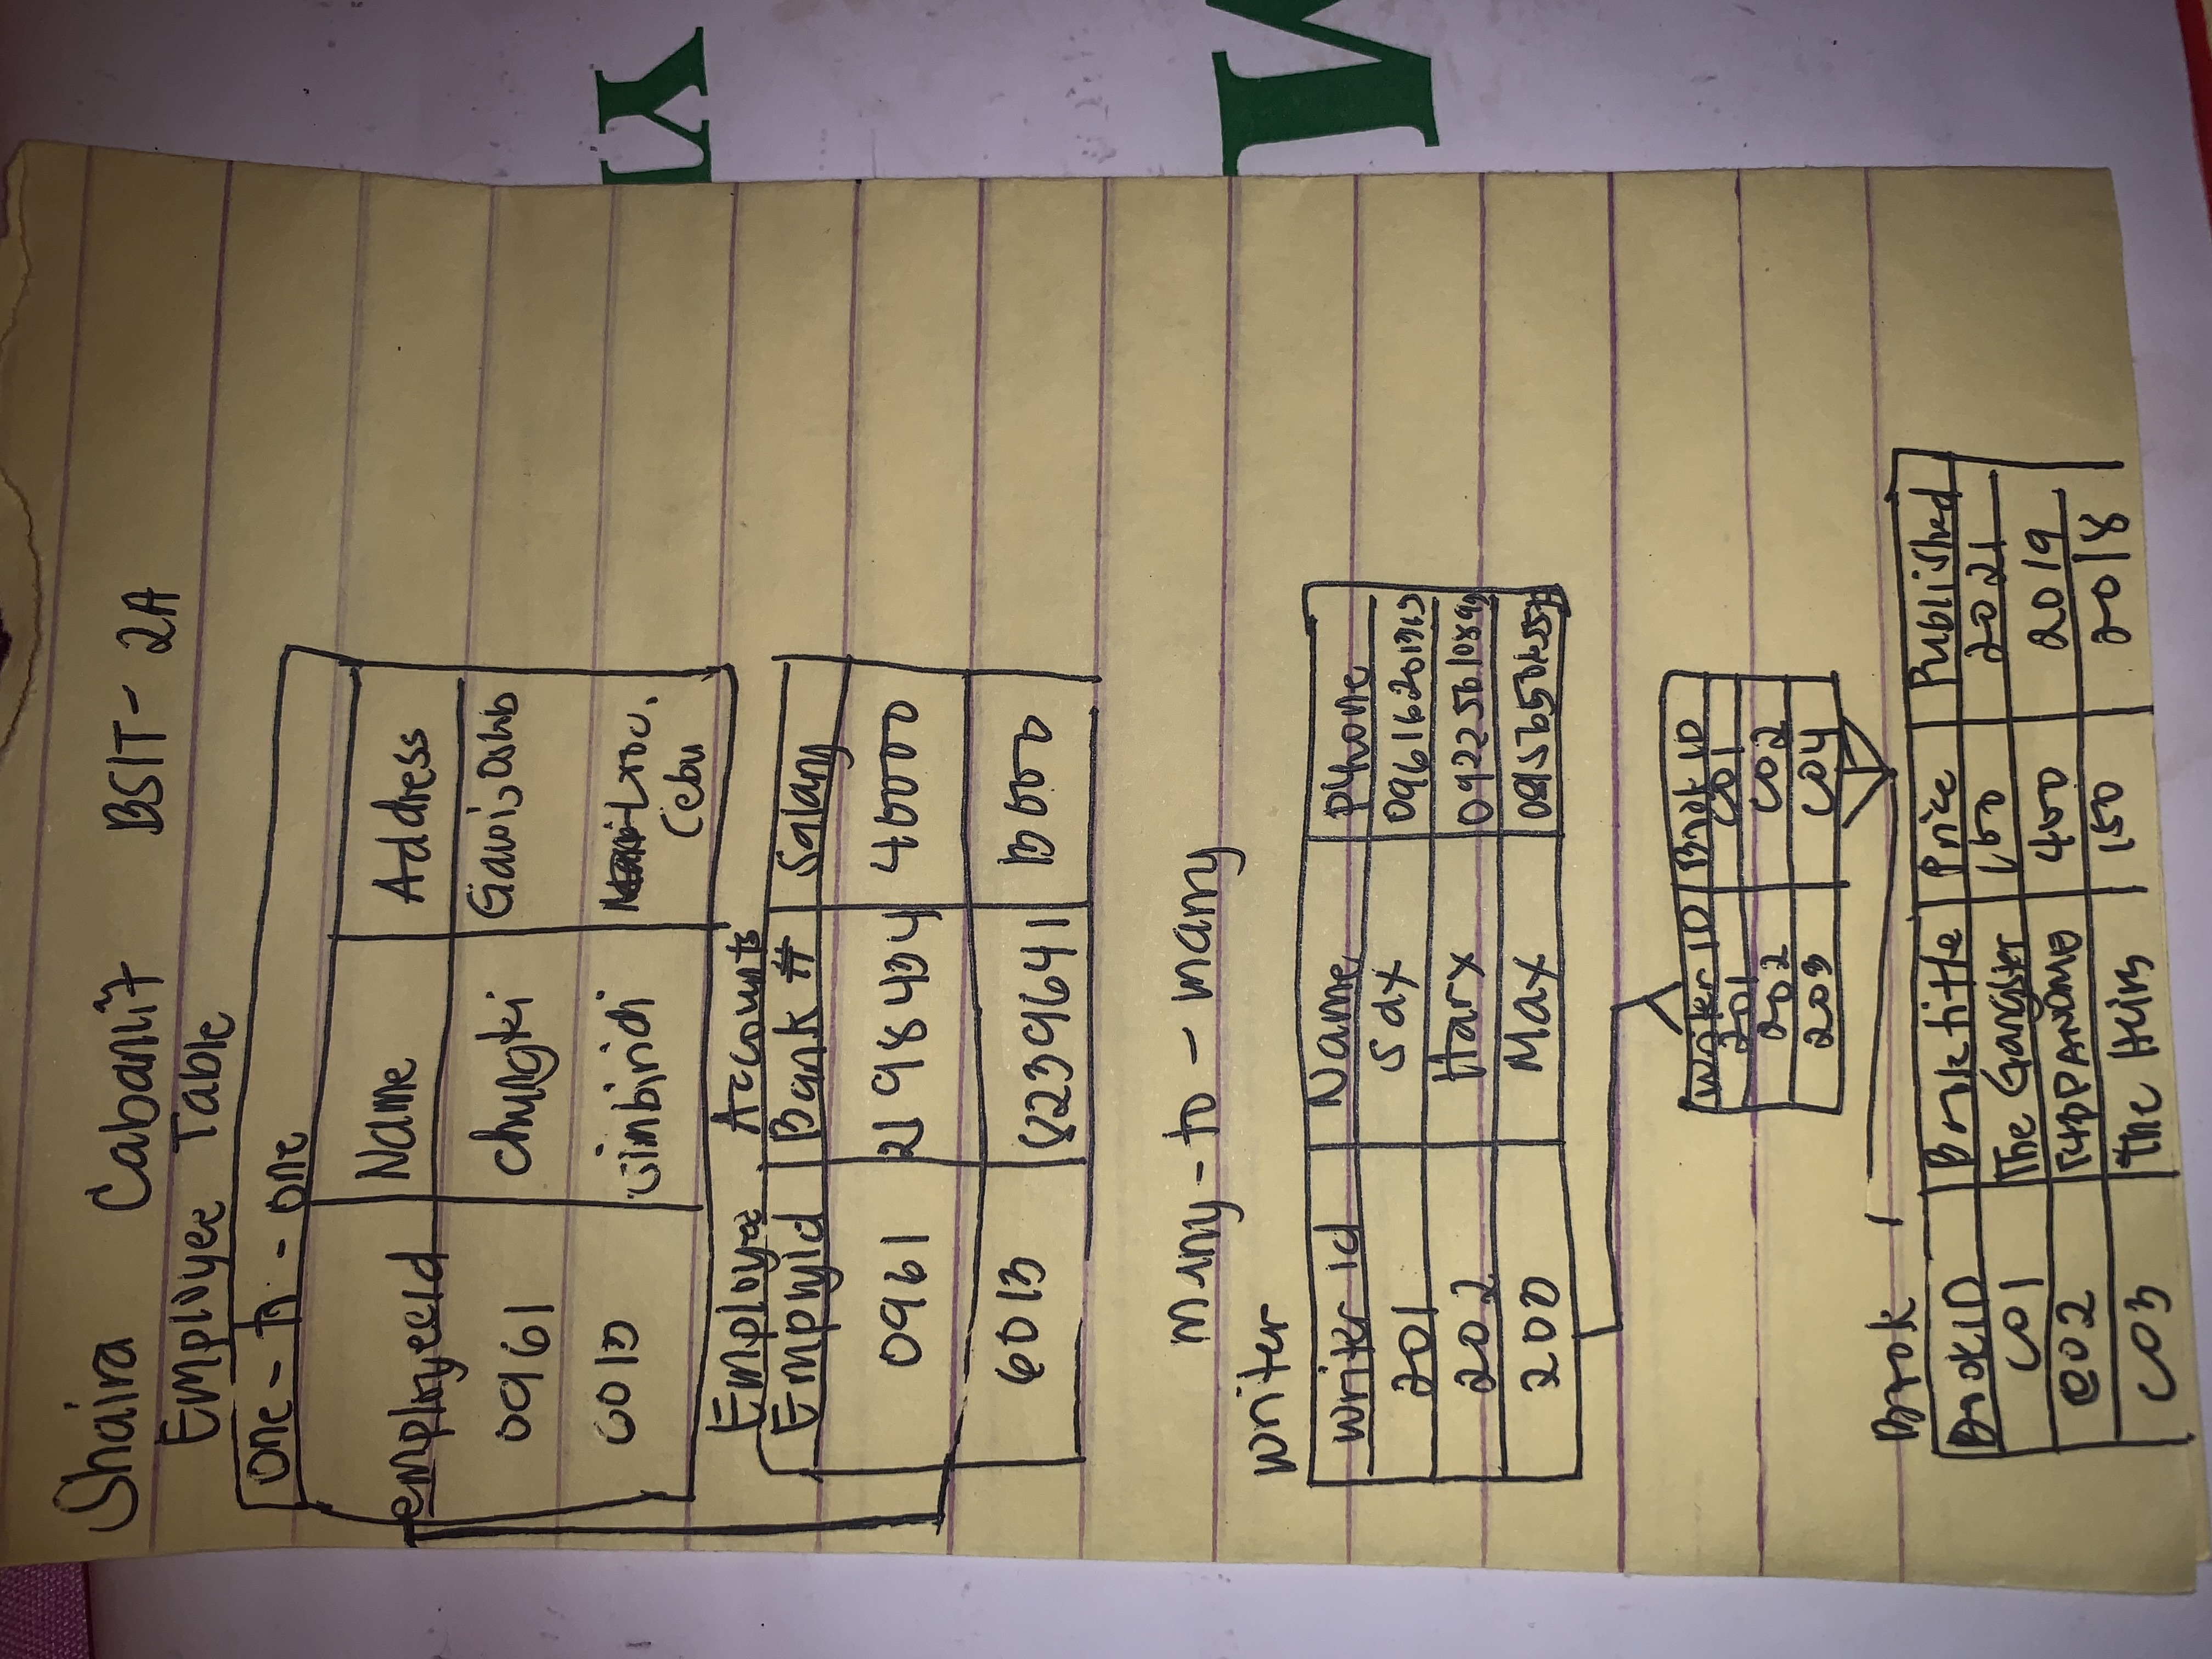 Shaira Cabanlit BSIT-2A
Employee Table
One-to-one
employeeId Name Address
0961 Chungki
6013 Cebu
Employee Accounts
EmployId Bank # Salary
0961 2198434 40000
6013 8239641 13000
many-to-many
writer
writer id Name Phone
201 Sax
202 Harx
200 Max
Writer ID Book ID
201 C01
202 C02
203 C04
Book
Book ID Book title Price Published
C01 The Gangster 100 2021
C02 400 2019
C03 The Heirs 150 2018